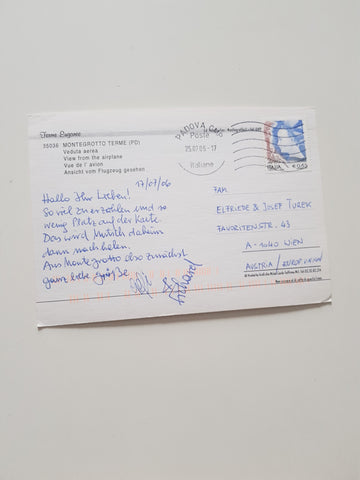 Terme Euganee
35036 MONTEGROTTO TERME (PD)
Veduta aerea
View from the airplane
Vue de l'avion
Ansicht vom Flugzeug gesehen
PADOVA
Poste
25.07.06-17
Italiane
ITALIA € 0,65
17/07/06
Hallo Ihr Lieben!
So viel zu erzählen und so
wenig Platz auf der Karte.
Das wird Mutsch daheim
dann nachholen.
Aus Montegrotto also zunächst
ganz liebe Grüße
FAM.
ELFRIEDE & JOSEF TUREK
FAVORITENSTR. 43
A-1040 WIEN
AUSTRIA / EUROP. UNION